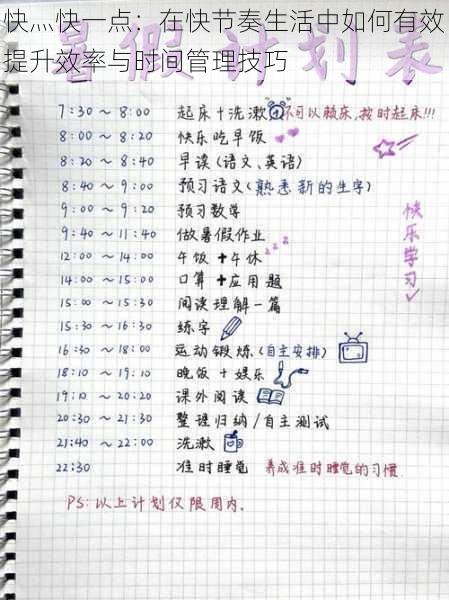 快灬快一点：在快节奏生活中如何有效
提升效率与时间管理技巧
暑假计划表
7:30 ~ 8:00 起床+洗漱 不可以赖床,按时起床!!!
8:00 ~ 8:20 快乐吃早饭
8:20 ~ 8:40 早读(语文、英语)
8:40 ~ 9:00 预习语文(熟悉新的生字)
9:00 ~ 9:20 预习数学
9:40 ~ 11:40 做暑假作业
12:00 ~ 14:00 午饭+午休 zzz
14:00 ~ 15:00 口算+应用题
15:00 ~ 15:30 阅读理解一篇
15:30 ~ 16:30 练字
16:30 ~ 18:00 运动锻炼(自主安排)
18:10 ~ 19:10 晚饭+娱乐
19:10 ~ 20:20 课外阅读
20:30 ~ 21:30 整理归纳/自主测试
21:40 ~ 22:00 洗漱
22:30 准时睡觉 养成准时睡觉的习惯.
快乐学习
PS:以上计划仅限周内.